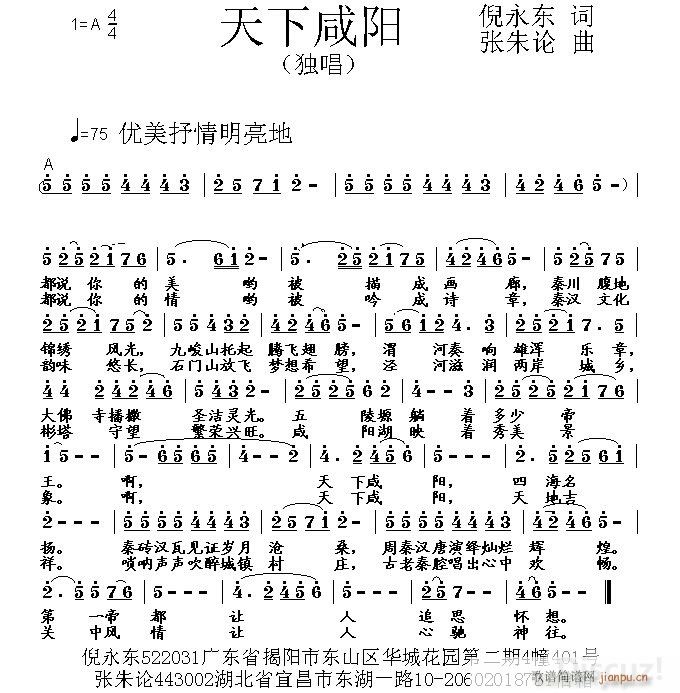 1=A 4/4
天下咸阳
倪永东 词
（独唱）
张朱论 曲
♩=75 优美抒情明亮地
A
(5 5 5 5 4 4 4 3 | 2 5 7 1 2 - | 5 5 5 5 4 4 4 3 | 4 2 4 6 5 - ) |
5 2 5 2 1 7 6 | 5. 6 1 2 - | 5. 2 5 2 5 2 1 | 4 2 4 6 5 - | 5 2 5 7 5
都说 你 的 美 哟 被 描 成 画 廊，秦川 腹地
都说 你 的 情 哟 被 吟 成 诗 章，秦汉 文化
2 5 2 1 7 5 2 | 5 5 4 3 2 | 4 2 4 6 5 - | 5 6 1 2 4. 3 | 2 5 2 1 7. 5
锦绣 风光，九峻山托起 腾飞翅 膀，渭 河奏 响 雄浑 乐 章，
韵味 悠长，石门山放飞 梦想希 望，泾 河滋 润 两岸 城 乡，
4 4 2 4 4 3 | 2 2 4 6 5 - | 5. 2 5 2 4 6 5 | 2 5 2 1 7 6
大佛 寺播撒 圣洁灵光。五 陵塬 躺 着 多少 帝
彬塔 守望 繁荣兴旺。咸 阳湖 映 着 秀美 景
1 5 - - | 5 - 6 5 6 5 | 4 - - 2 | 4. 2 4 5 6 5 | 5 - - - | 4. 5 2 4 2
王。 啊， 天 下咸 阳， 四 海名
象。 啊， 天 下咸 阳， 天 地吉
2 - - - | 5 5 5 5 4 4 4 3 | 2 5 7 1 2 - | 5 5 5 5 4 4 4 3 | 4 2 5 7 5 -
扬。 秦砖汉瓦见证岁月 沧 桑， 周秦汉唐演绎灿烂 辉 煌。
祥。 唢呐声声吹醉城镇 村 庄， 古老秦腔唱出心中 欢 畅。
2. 5 5 7 6 | 5 - - - | 4. 2 4 5 6 | 5 - - - ‖
第 一帝 都 让 人 追思 怀想。
关 中风 情 让 人 心驰 神往。
倪永东522031广东省揭阳市东山区华城花园第二期4幢401号
张朱论443002湖北省宜昌市东湖一路10-2060201
歌谱简谱网
jianpu.cn